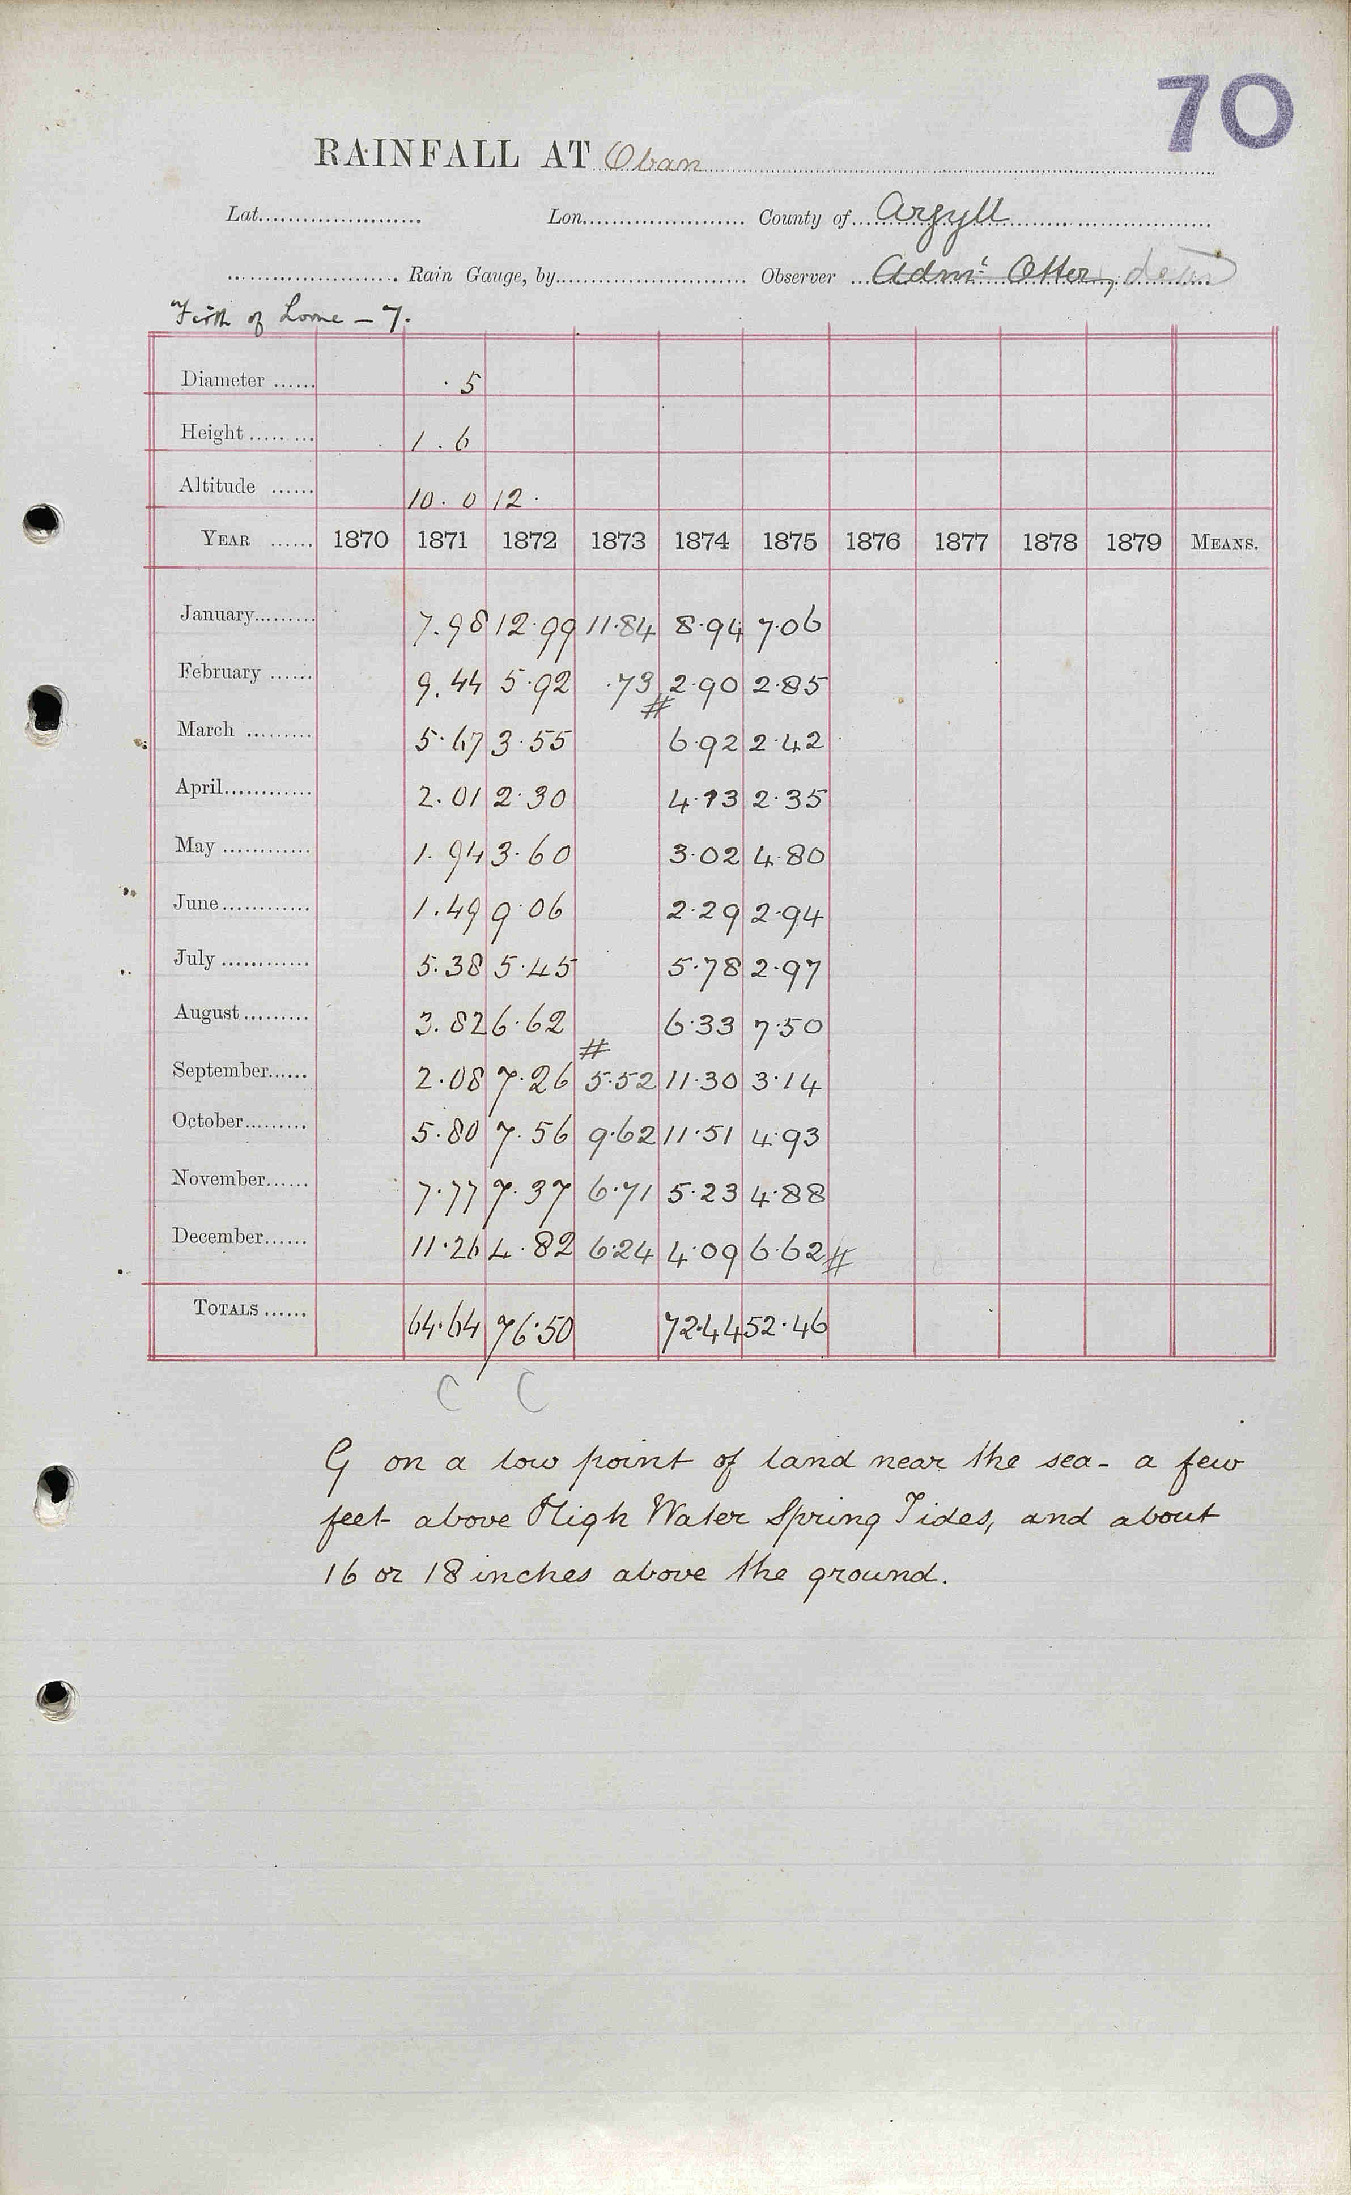 70
RAINFALL AT Oban
Lat. Lon. County of Argyll
Rain Gauge, by Observer Adml Otter, dead
Firth of Lorne - 7.
Diameter ...... ·5
Height ......... 1.6
Altitude ...... 10.0 12·
YEAR ...... 1870 1871 1872 1873 1874 1875 1876 1877 1878 1879 MEANS.
January......... 7.98 12·99 11·84 8·94 7·06
February ...... 9.44 5·92 ·73 2·90 2·85
#
March ......... 5·67 3·55 6·92 2·42
April............ 2.01 2·30 4·13 2·35
May ............ 1.94 3·60 3·02 4·80
June............ 1.49 9·06 2·29 2·94
July ............ 5.38 5·45 5·78 2·97
August ......... 3.82 6·62 6·33 7·50
#
September...... 2·08 7·26 5·52 11·30 3·14
October......... 5·80 7·56 9·62 11·51 4·93
November...... 7·77 7·37 6·71 5·23 4·88
December...... 11·26 4·82 6·24 4·09 6·62 #
TOTALS ...... 64·64 76·50 72·44 52·46
C C
G on a low point of land near the sea - a few
feet above High Water Spring Tides, and about
16 or 18 inches above the ground.